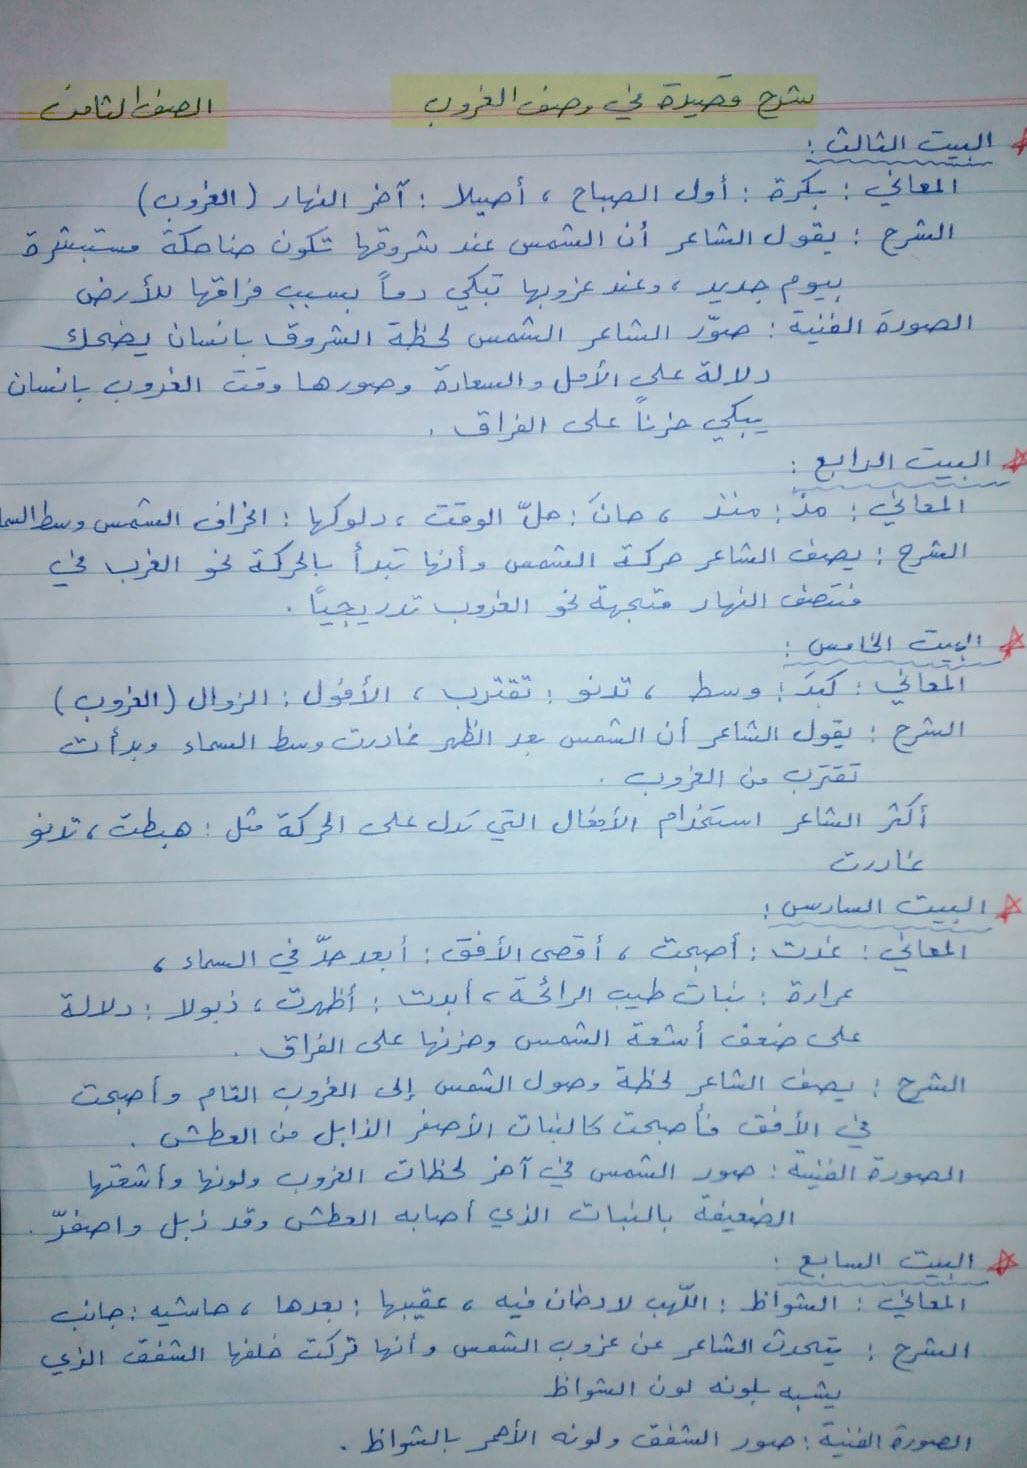 شرح قصيدة في وصف الغروب الصف الثامن
البيت الثالث :
المعاني : بكرة : أول الصباح ، أصيلا : آخر النهار (الغروب)
الشرح : يقول الشاعر أن الشمس عند شروقها تكون ضاحكة مستبشرة
بيوم جديد ، وعند غروبها تبكي دماً بسبب فراقها للأرض
الصورة الفنية : صوّر الشاعر الشمس لحظة الشروق بانسان يضحك
دلالة على الأمل والسعادة وصورها وقت الغروب بانسان
يبكي حزناً على الفراق .
البيت الرابع :
المعاني : مذ : منذ ، حانَ : حلّ الوقت ، دلوكها : انحراف الشمس وسط السما
الشرح : يصف الشاعر حركة الشمس وأنها تبدأ بالحركة نحو الغرب في
منتصف النهار متجهة نحو الغروب تدريجياً .
البيت الخامس :
المعاني : كبدَ : وسط ، تدنو : تقترب ، الأفول : الزوال (الغروب)
الشرح : يقول الشاعر أن الشمس بعد الظهر غادرت وسط السماء وبدأت
تقترب من الغروب .
أكثر الشاعر استخدام الأفعال التي تدل على الحركة مثل : هبطت ، تدنو
غادرت
البيت السادس :
المعاني : غدت : أصبحت ، أقصى الأفق : أبعد حدّ في السماء ،
عرارة : نبات طيب الرائحة ، أبدت : أظهرت ، ذبولا : دلالة
على ضعف أشعة الشمس وحزنها على الفراق .
الشرح : يصف الشاعر لحظة وصول الشمس إلى الغروب التام وأصبحت
في الأفق فأصبحت كالنبات الأصفر الذابل من العطش .
الصورة الفنية : صور الشمس في آخر لحظات الغروب ولونها وأشعتها
الضعيفة بالنبات الذي أصابه العطش وقد ذبل واصفرّ .
البيت السابع :
المعاني : الشواظ : اللّهب لا دخان فيه ، عقيبها : بعدها ، حاشيه : جانب
الشرح : يتحدث الشاعر عن غروب الشمس وأنها تركت خلفها الشفق الذي
يشبه بلونه لون الشواظ
الصورة الفنية : صور الشفق ولونه الأحمر بالشواظ .